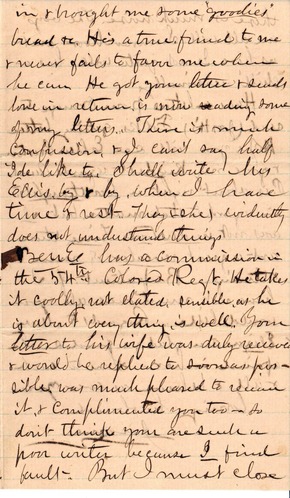 in & brought me some goodies
bread &c. He's a true friend to me
& never fails to favor me when
he can He got your letter & sends
love in return is now reading some
of my letters. There is much
Confusion & I can't say half
I'de like to. Shall write Mrs
Ellis by & by when I have
time & rest. They (she) evidently
does not understand things
has a commission in
the 54th Colored Regt, He takes
it coolly, not elated, sensible, as he
is about every thing is well. Your
letter to his wife was duly received
& would be replied to soon as pos-
sible, was much pleased to receive
it, & Complimented you too - so
don't think you are such a
poor writer because I find
fault - But I must close